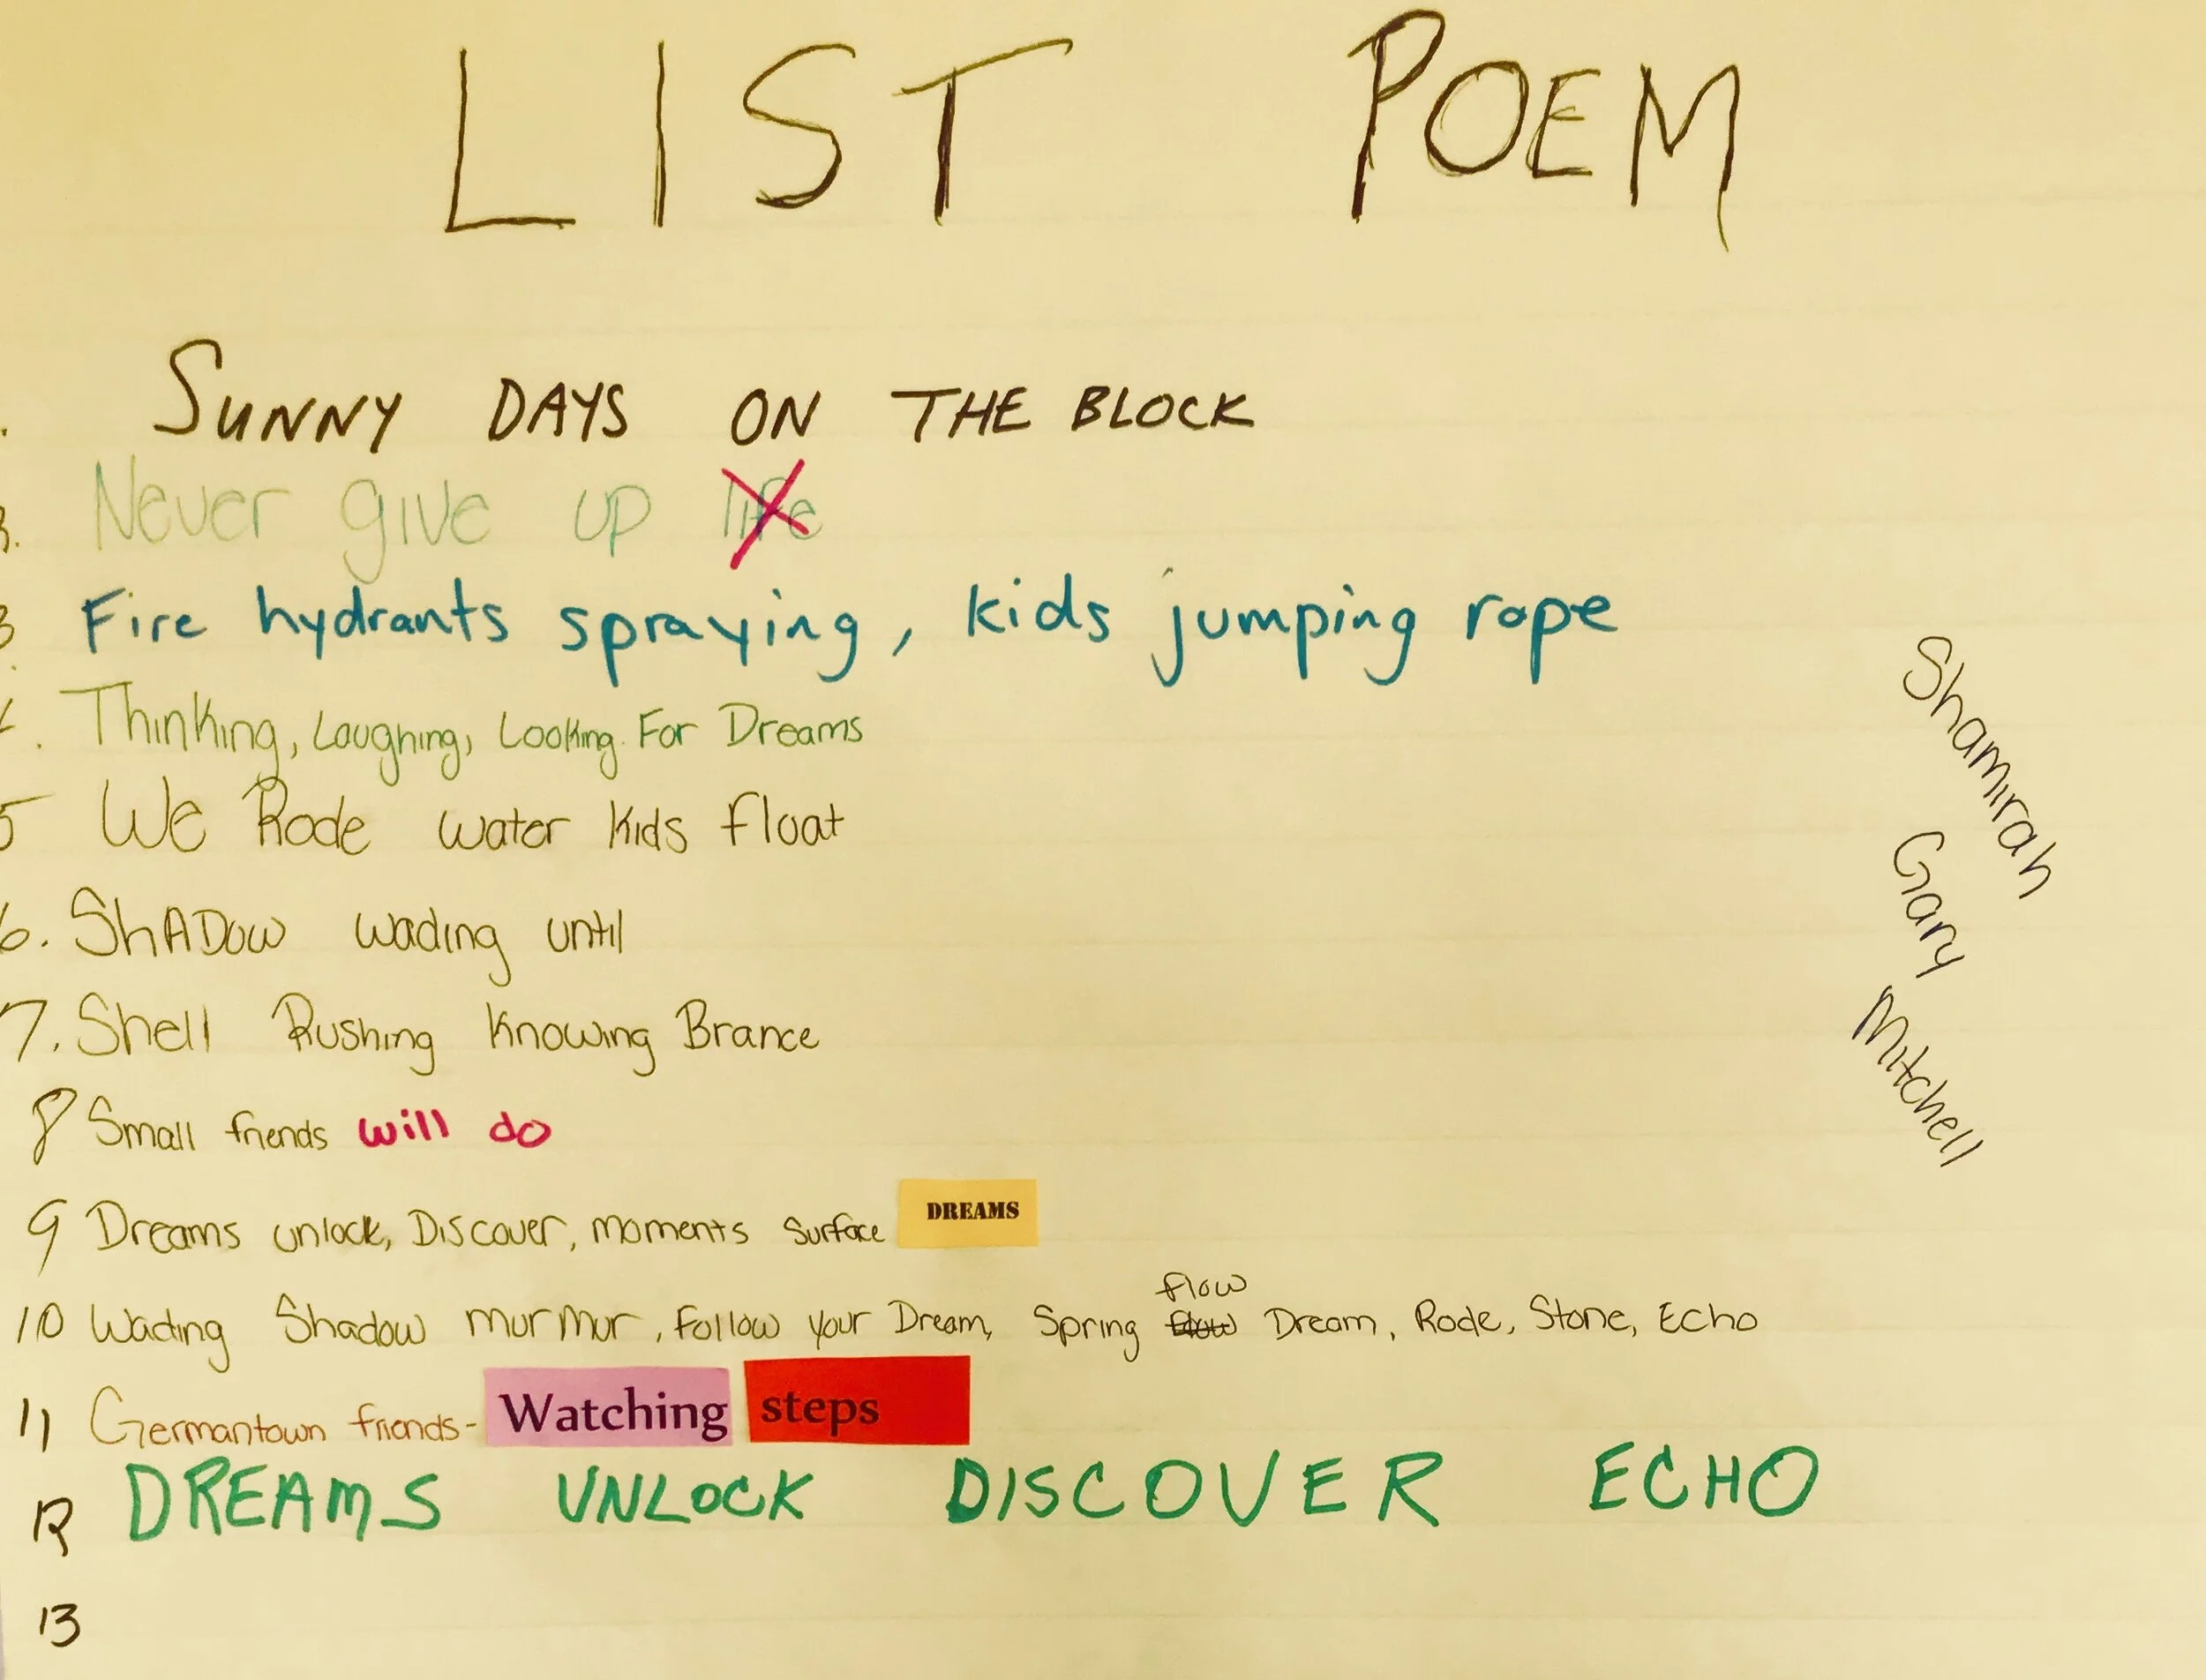 LIST POEM
. SUNNY DAYS ON THE BLOCK
. Never give up life
3. Fire hydrants spraying, kids jumping rope
4. Thinking, Laughing, Looking For Dreams
5 We Rode water Kids float
6. ShADow wading until
7. Shell Rushing Knowing Brance
8 Small friends will do
9 Dreams unlock, Discover, moments surface DREAMS
flow
10 Wading Shadow murmur, Follow your Dream, Spring Dream, Rode, Stone, Echo
11 Germantown friends- Watching steps
12 DREAMS UNLOCK DISCOVER ECHO
13
Shamirah
Gary
Mitchell